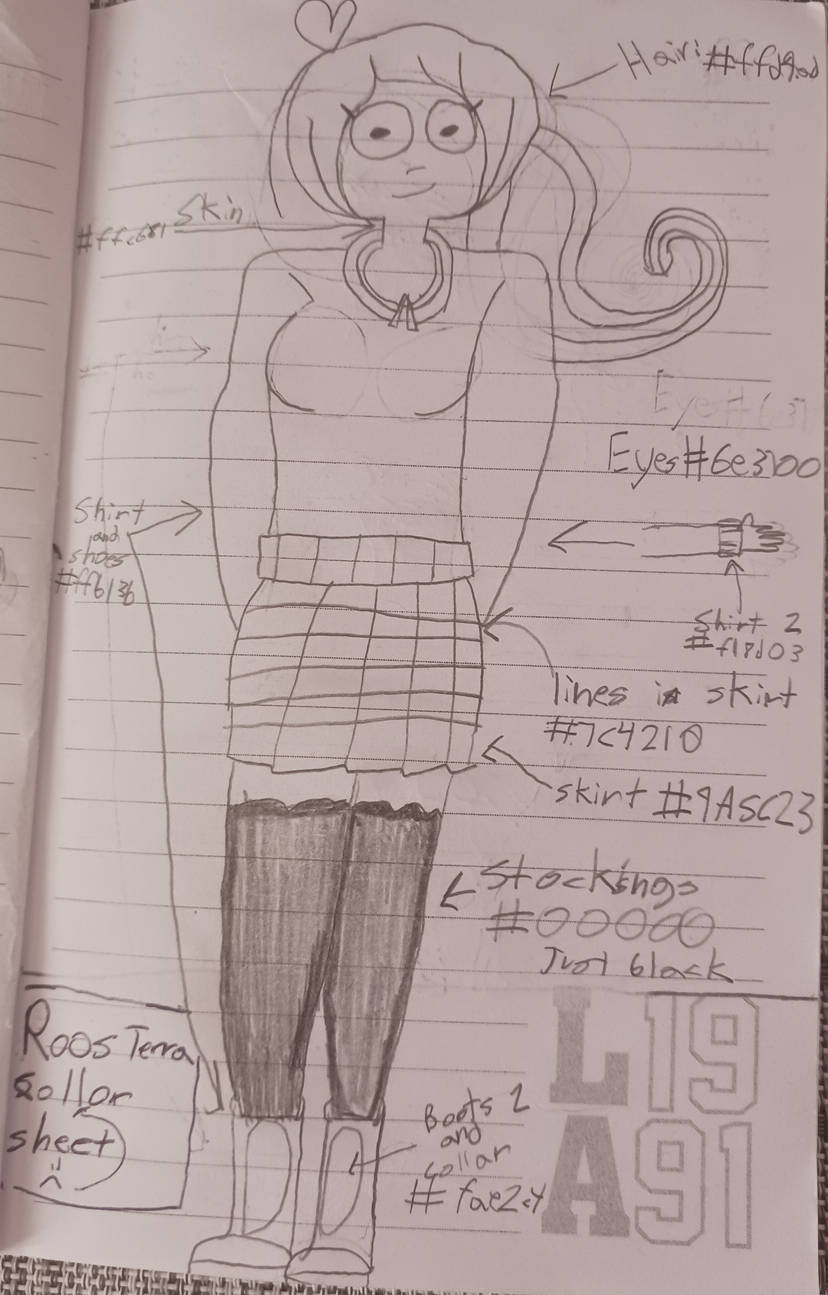 Hair: #ffd9ad
Skin
#ffc681
Eye#
Eyes#6e3100
Shirt
and
shoes
#ff6136
Shirt 2
#f18d03
lines in skirt
#7c4210
skirt #9A5C23
Stockings
#00000
Just black
Roos Terra
Collor
sheet
Boots 2
and
collar
L19
A91